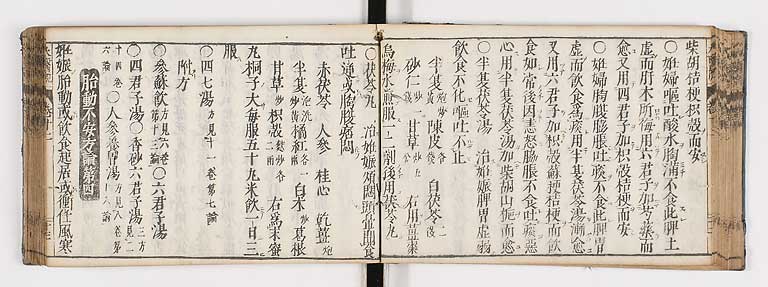 柴胡桔梗枳殻而安
○一妊婦嘔吐酸水胸滿不食此脾土
虚而肝木所侮用六君子加芍薬而
愈又用四君子加枳殻桔梗而安
○一妊婦胸腹膨脹吐痰不食此脾胃
虚而飲食為痰用半夏茯苓湯漸愈
又用六君子加枳殻蘇梗桔梗而飲
食如常後因恚怒脇脹不食吐痰惡
心用半夏茯苓湯加柴胡山梔而愈
○半夏茯苓湯 治妊娠脾胃虚弱
飲食不化嘔吐不止
半夏 陳皮 白茯苓 二
砂仁 一 甘草 右用薑棗
烏梅水煎服一二劑後用茯苓丸
○茯苓丸 治妊娠煩悶頭暈聞食
吐逆或胸腹痞悶
赤茯苓 人參 桂心 乾薑 炮
半夏 泡洗炒黄 橘紅 各一兩 白朮 炒 葛根
甘草 炒 枳殻 二兩 右為末蜜
丸桐子大每服五十九米飲一日三
服
附方
○四七湯 方見十一卷第七論
○參蘇飲 ○六君子湯
○四君子湯 ○香砂六君子湯 三方
○人參養胃湯 方見八卷第
胎動不安方論第四
妊娠胎動或飲食起居或衝任風寒